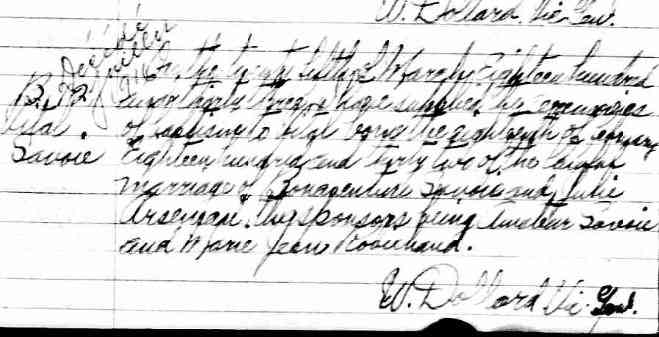 W. Dollard, Vic. Gen.
Décédé
juillet
B. 72
Vital
Savoie
On the twenty fifth of March Eighteen hundred
and thirty two, I have supplied the ceremonies
of baptism to Vital born the eighteenth of February
Eighteen hundred and thirty two of the lawful
marriage of Bonaventure Savoie and Julie
Arseneau. The sponsors being Amateur Savoie
and Marie Jean Robichaud.
W. Dollard Vic. Gen.